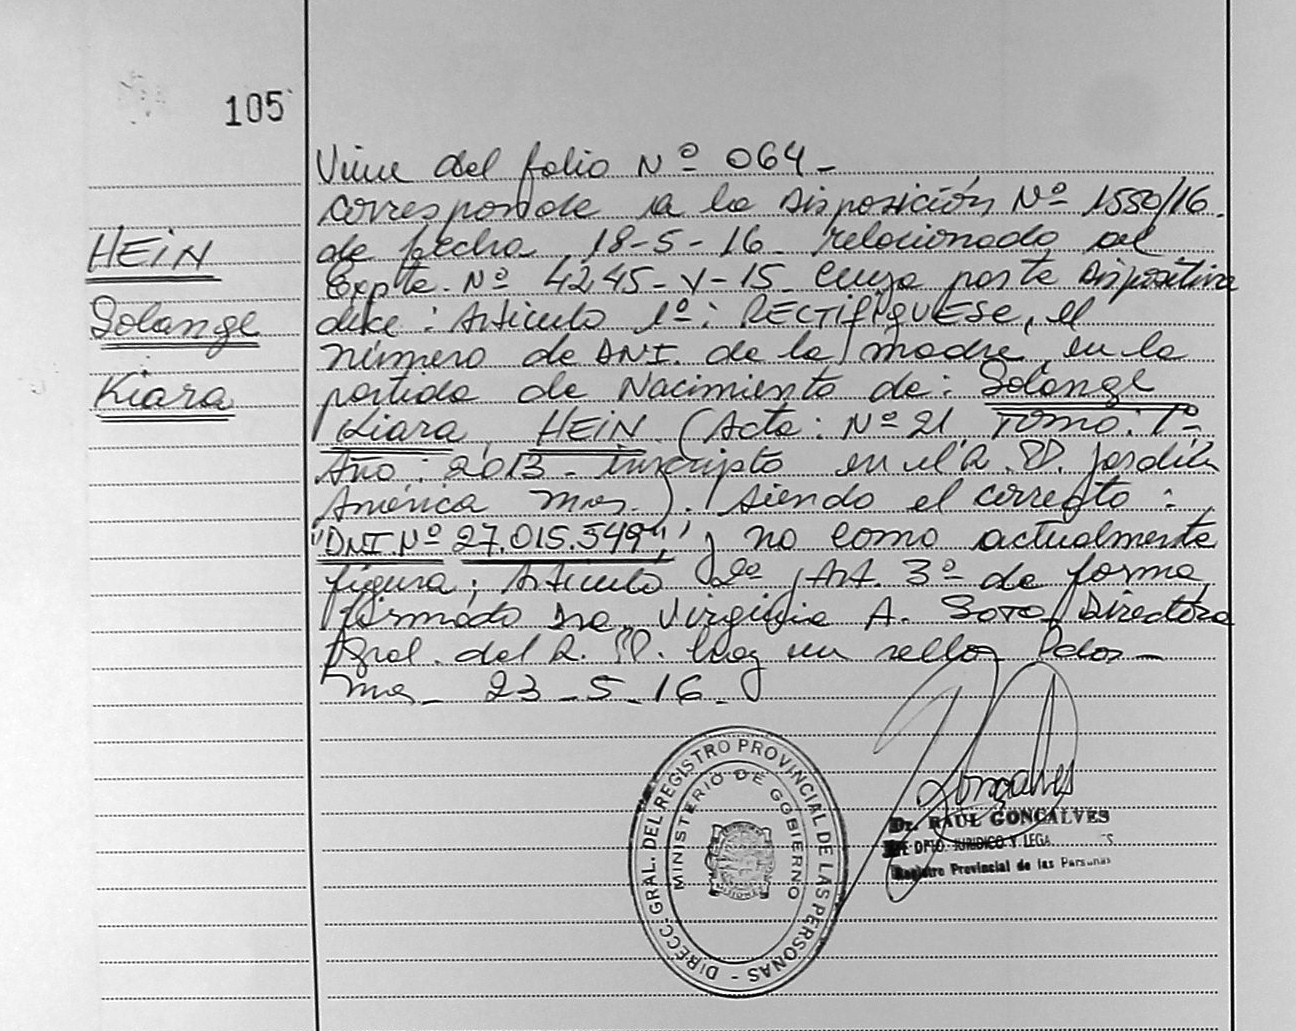 105
HEiN
Solange
Kiara
Viene del folio Nº 064-
corresponde a la Disposición Nº 1550/16.
de fecha 18-5-16 relacionado al
Expte. Nº 4245-V-15 cuya parte Dispositiva
dice: Articulo 1º: RECTIFIQUESE, el
número de DNI. de la madre en la
partida de Nacimiento de: Solange
Kiara, HEiN (Acta: Nº 21 Tomo: 1º
Año: 2013 - inscripta en el R. P. Jardín
América Mnes.). Siendo el correcto:
"DNI. Nº 27.015.549", y no como actualmente
figura; Articulo 2º, Art. 3º de forma,
firmado Dra. Virginia A. Soto Directora
Gral. del R. P. hay un sello, Pdas-
Mnes- 23-5-16.
DIRECC. GRAL. DEL REGISTRO PROVINCIAL DE LAS PERSONAS -
MINISTERIO DE GOBIERNO
MISIONES
Gonçalves
Dr. RAUL GONCALVES
JEFE DPTO. JURIDICO Y LEGA S
Registro Provincial de las Personas